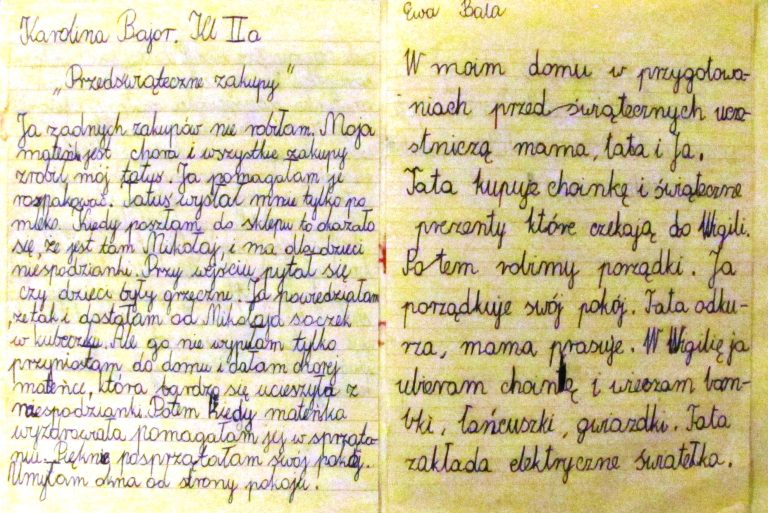 Karolina Bajor. Kl IIa
„Przedświąteczne zakupy"
Ja żadnych zakupów nie robiłam. Moja
mateńka jest chora i wszystkie zakupy
zrobił mój tatuś. Ja pomagałam je
rozpakować. Tatuś wysłał mnie tylko po
mleko. Kiedy poszłam do sklepu to okazało
się, że jest tam Mikołaj, i ma dla dzieci
niespodzianki. Przy wejściu pytał się
czy dzieci były grzeczne. Ja powiedziałam
, że tak i dostałam od Mikołaja soczek
w kubeczku. Ale go nie wypiłam tylko
przyniosłam do domu i dałam chorej
mateńce, która bardzo się ucieszyła z
niespodzianki. Potem kiedy mateńka
wyzdrowiała pomagałam jej w sprząta-
niu. Pięknie posprzątałam swój pokój.
Umyłam okna od strony pokoju.
Ewa Bala
W moim domu w przygotowa-
niach przed świątecznych ucze-
stniczą mama, tata i ja.
Tata kupuje choinkę i świąteczne
prezenty które czekają do Wigili.
Potem robimy porządki. Ja
porządkuje swój pokój. Tata odku-
rza, mama prasuje. W Wigilię ja
ubieram choinkę i wieszam bom-
bki, łańcuszki, gwiazdki. Tata
zakłada elektryczne światełka.